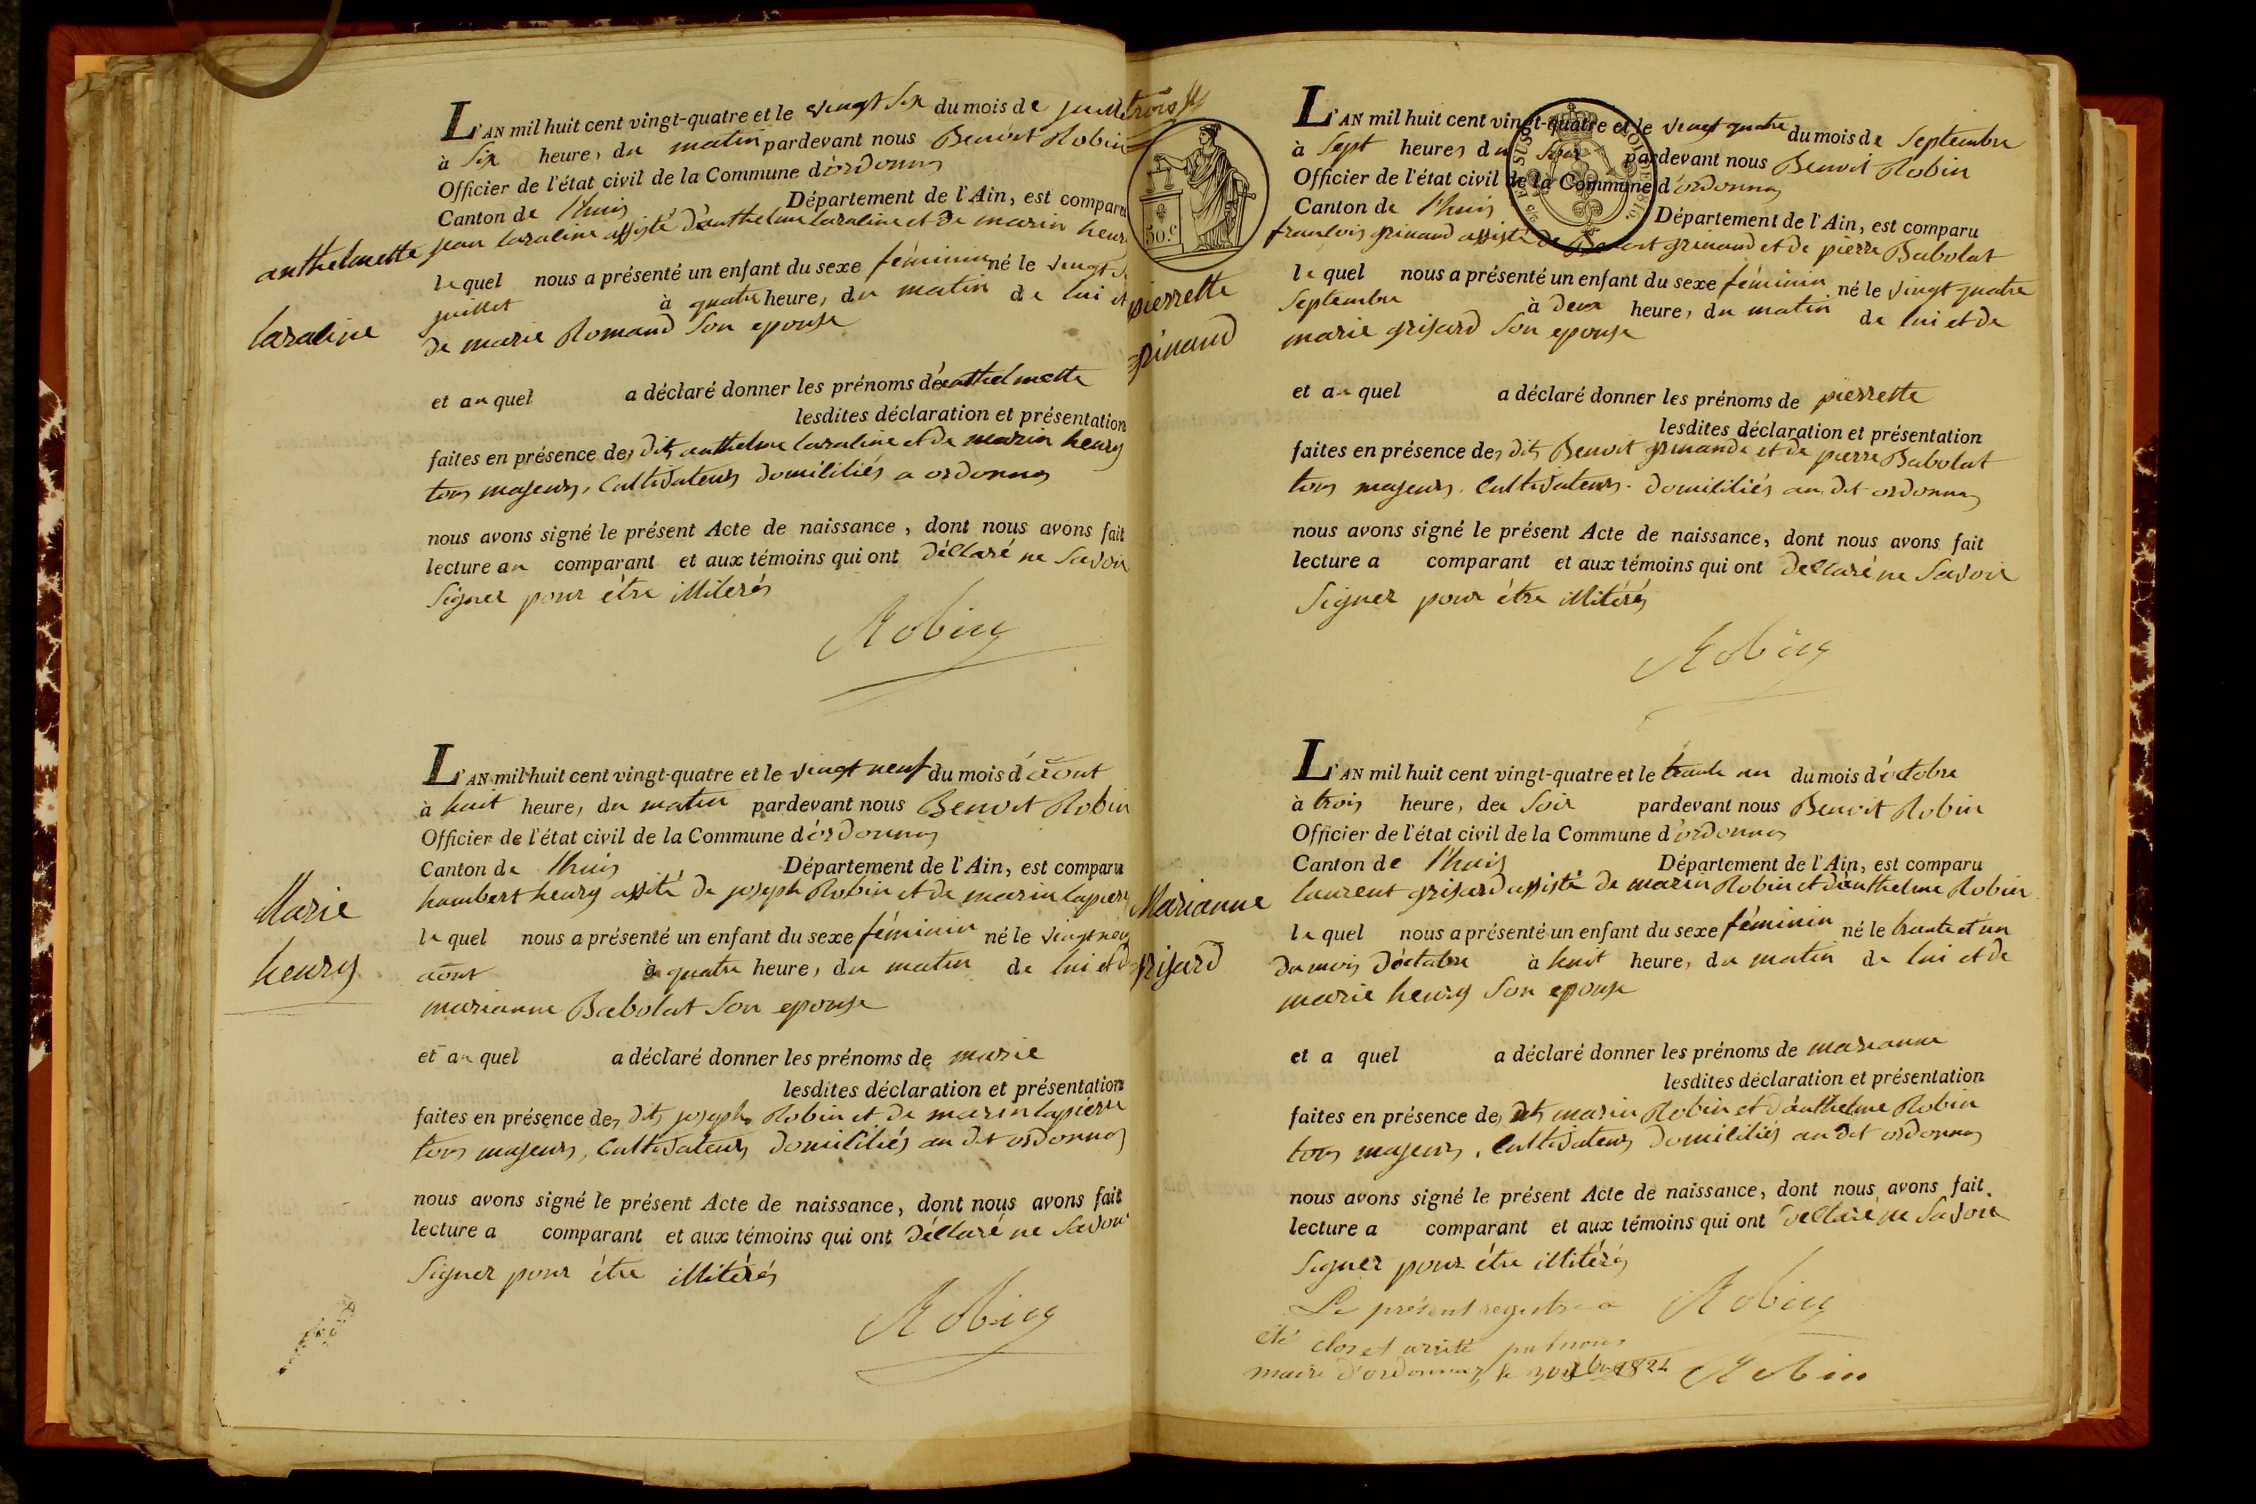 L'AN mil huit cent vingt-quatre et le vingt six du mois de juillet
à six heures du matin pardevant nous Benoit Robin
Officier de l'état civil de la Commune d'ordonnas
Canton de l'huis Département de l'Ain, est comparu
jean lazaline assisté d'anthelme lazaline et de marin henry
anthelmette
lazaline
lequel nous a présenté un enfant du sexe féminin né le vingt six
juillet à quatre heures du matin de lui et
de marie Romand son epouse
et au quel a déclaré donner les prénoms d'anthelmette
lesdites déclaration et présentation
faites en présence des dits anthelme lazaline et de marin henry
tous majeurs, cultivateurs domiciliés a ordonnas
nous avons signé le présent Acte de naissance, dont nous avons fait
lecture au comparant et aux témoins qui ont déclaré ne savoir
signer pour être illiterés
Robin
L'AN mil huit cent vingt-quatre et le vingt neuf du mois d'aout
à huit heures du matin pardevant nous Benoit Robin
Officier de l'état civil de la Commune d'ordonnas
Canton de l'huis Département de l'Ain, est comparu
humbert henry assité de joseph Robin et de marin lapierre
Marie
henry
lequel nous a présenté un enfant du sexe féminin né le vingt neuf
aout à quatre heures du matin de lui et de
marianne Babolat son epouse
et au quel a déclaré donner les prénoms de marie
lesdites déclaration et présentation
faites en présence des dits joseph Robin et de marin lapierre
tous majeurs, cultivateurs domiciliés au dit ordonnas
nous avons signé le présent Acte de naissance, dont nous avons fait
lecture a comparant et aux témoins qui ont déclaré ne savoir
signer pour être illitérés
Robin
trois
50.c
L'AN mil huit cent vingt-quatre et le vingt quatre du mois de septembre
à sept heures du soir pardevant nous Benoit Robin
Officier de l'état civil de la Commune d'ordonnas
Canton de l'huis Département de l'Ain, est comparu
francois grinand assisté de Benoit grinand et de pierre Babolat
pierrette
grinand
lequel nous a présenté un enfant du sexe féminin né le vingt quatre
septembre à deux heures du matin de lui et de
marie grisard son epouse
et au quel a déclaré donner les prénoms de pierrette
lesdites déclaration et présentation
faites en présence des dits Benoit grinand et de pierre Babolat
tous majeurs. cultivateurs. domiciliés au dit ordonnas
nous avons signé le présent Acte de naissance, dont nous avons fait
lecture a comparant et aux témoins qui ont déclaré ne savoir
signer pour être illitérés
Robin
L'AN mil huit cent vingt-quatre et le trente un du mois d'octobre
à trois heures du soir pardevant nous Benoit Robin
Officier de l'état civil de la Commune d'ordonnas
Canton de l'huis Département de l'Ain, est comparu
laurent grisard assisté de marin Robin et d'anthelme Robin
Marianne
grisard
lequel nous a présenté un enfant du sexe féminin né le trente et un
du mois d'octobre à huit heures du matin de lui et de
marie henry son epouse
et a quel a déclaré donner les prénoms de marianne
lesdites déclaration et présentation
faites en présence des dits marin Robin et d'anthelme Robin
tous majeurs, cultivateurs domiciliés au dit ordonnas
nous avons signé le présent Acte de naissance, dont nous avons fait
lecture a comparant et aux témoins qui ont déclaré ne savoir
signer pour être illitérés
Robin
Le présent registre a
été clos et arrêté par nous
maire d'ordonnas le 1824 Robin